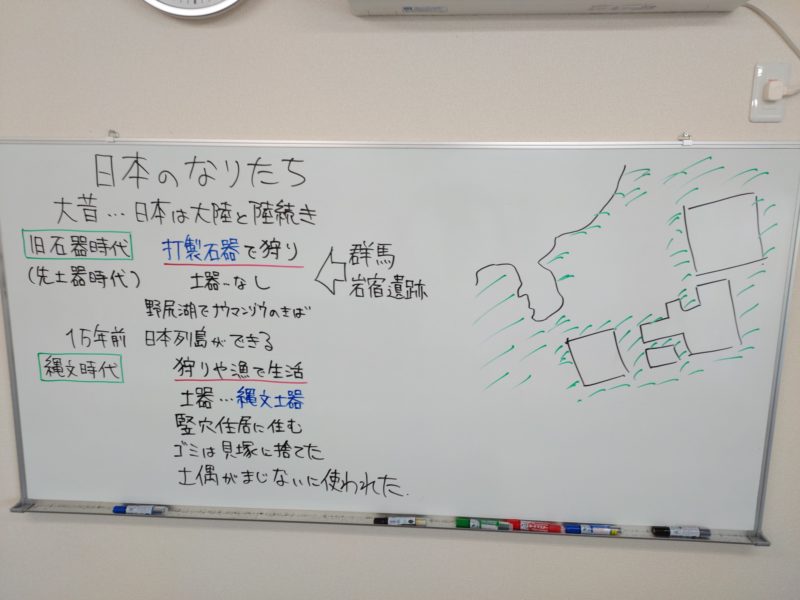 日本のなりたち
大昔…日本は大陸と陸続き
旧石器時代 打製石器で狩り
(先土器時代) 土器…なし
群馬
岩宿遺跡
野尻湖でナウマンゾウのきば
1万年前 日本列島ができる
縄文時代 狩りや漁で生活
土器…縄文土器
竪穴住居に住む
ゴミは貝塚に捨てた
土偶がまじないに使われた.